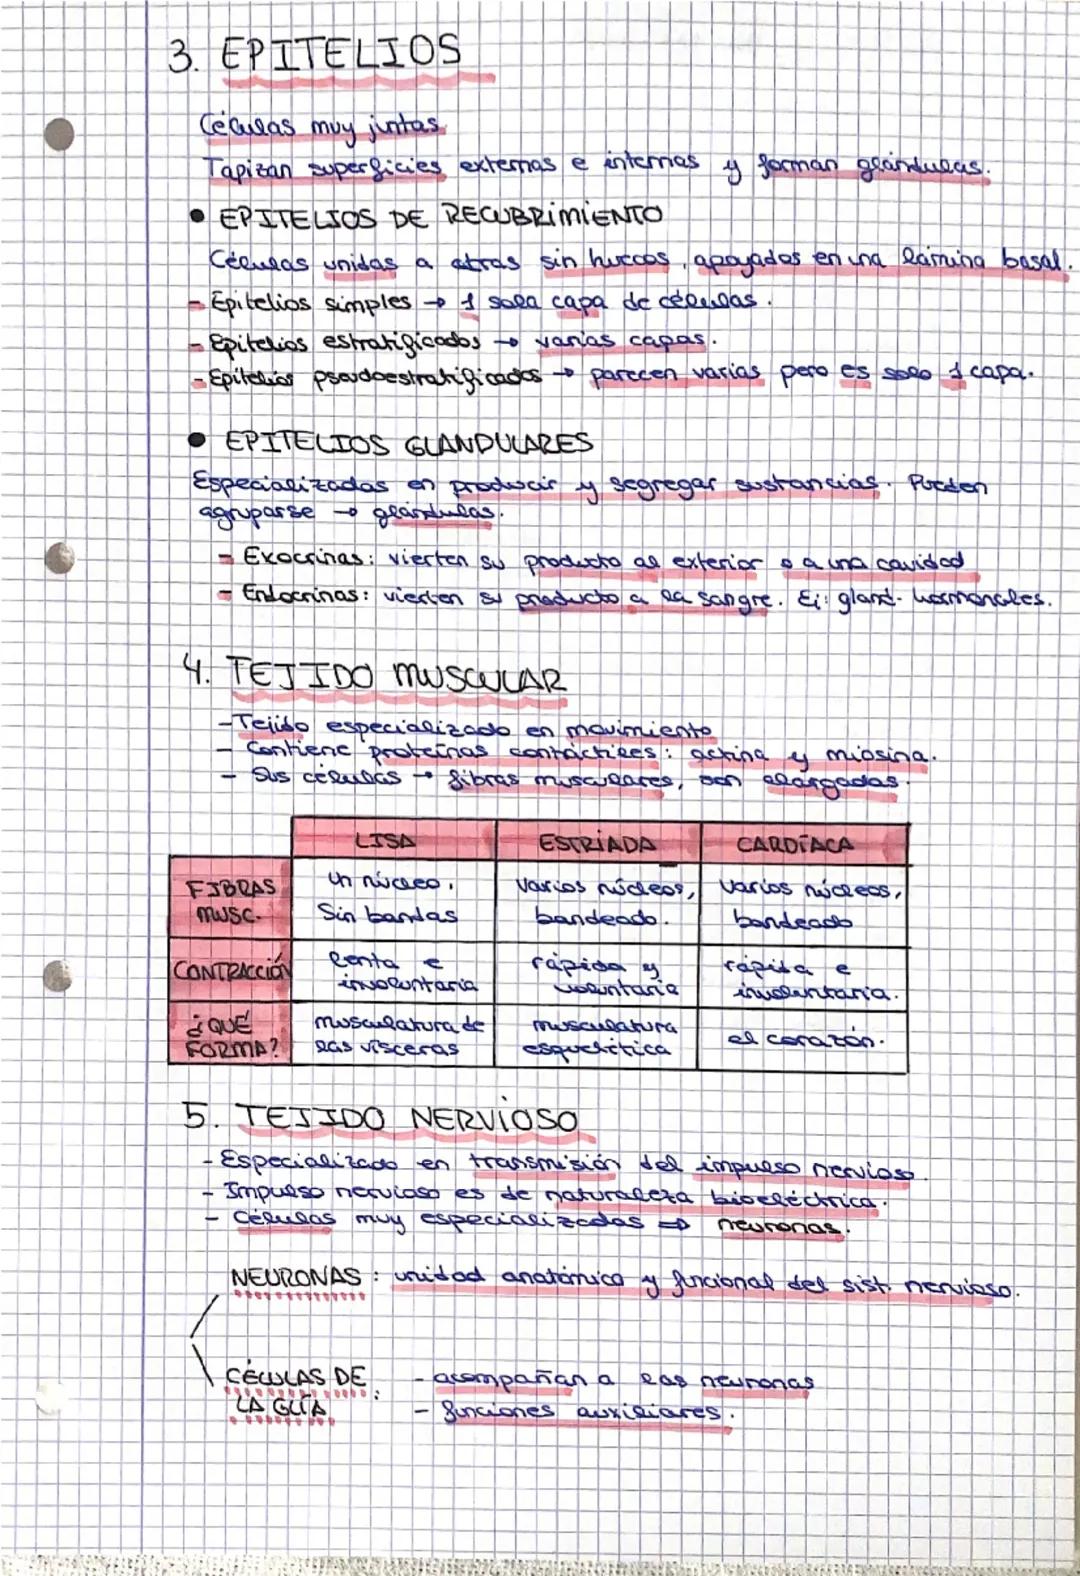 3. EPITELIOS
Células muy juntas.
Tapizan superficies externas e internas y forman glándulas.
• EPITELIOS DE RECUBRIMIENTO
Células unidas a otras sin huecos, apoyados en una lámina basal.
- Epitelios simples → 1 sola capa de células.
- Epitelios estratificados → varias capas.
- Epitelios pseudoestratificados → parecen varias pero es solo 1 capa.
• EPITELIOS GLANDULARES
Especializadas en producir y segregar sustancias. Pueden
agruparse → glándulas.
- Exocrinas: vierten su producto al exterior o a una cavidad
- Endocrinas: vierten su producto a la sangre. Ej: gland. hormonales.
4. TEJIDO MUSCULAR
- Tejido especializado en movimiento
- Contiene proteínas contráctiles: actina y miosina.
- Sus células → fibras musculares, son alargadas.
LISA ESTRIADA CARDÍACA
FIBRAS un núcleo. varios núcleos, varios núcleos,
MUSC. Sin bandas bandeado. bandeado
CONTRACCIÓN lenta e rápida y rápida e
involuntaria voluntaria involuntaria.
¿QUÉ musculatura de musculatura el corazón.
FORMA? las vísceras esquelética
5. TEJIDO NERVIOSO
- Especializado en transmisión del impulso nervioso.
- Impulso nervioso es de naturaleza bioeléctrica.
- Células muy especializadas ⇒ neuronas.
NEURONAS: unidad anatómica y funcional del sist. nervioso.
CÉLULAS DE - acompañan a las neuronas
LA GLÍA: - funciones auxiliares.